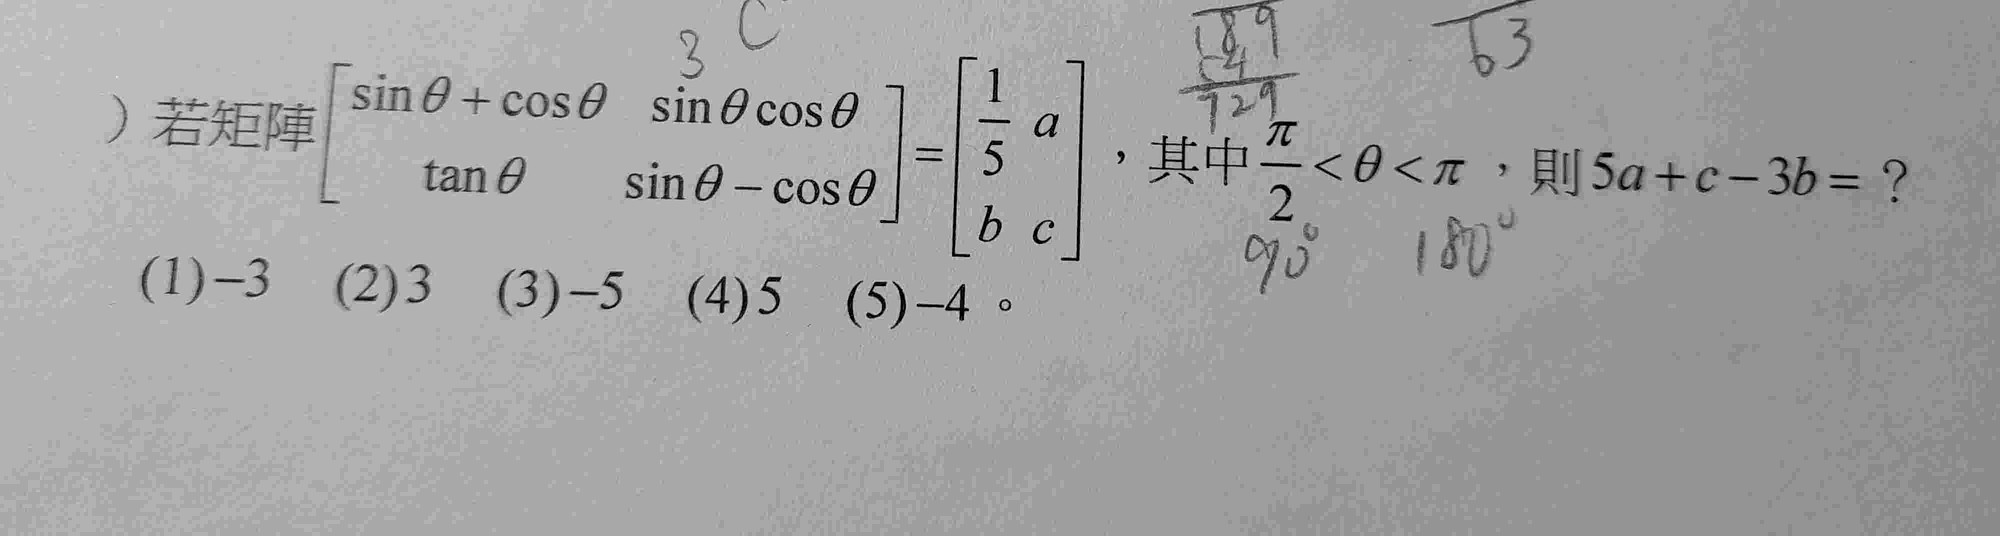 3 C
189
54
729
63
)若矩陣[sinθ+cosθ sinθcosθ tanθ sinθ−cosθ]=[1/5 a b c],其中π/2<θ<π,則5a+c−3b=?
90° 180°
(1)−3 (2)3 (3)−5 (4)5 (5)−4。